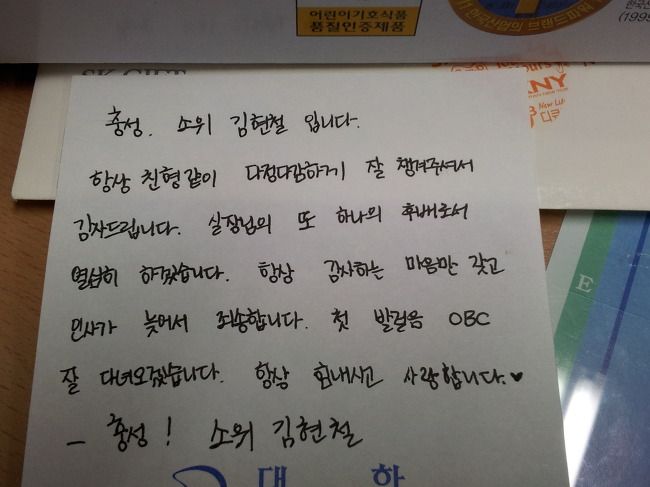 어린이기호식품
품질인증제품
한국산업의 브랜드파워
(1999
SK GIFT
ANY
New Life
디큐
충성. 소위 김현철 입니다.
항상 친형같이 다정다감하게 잘 챙겨주셔서
감사드립니다. 실장님의 또 하나의 후배로서
열심히 하겠습니다. 항상 감사하는 마음만 갖고
인사가 늦어서 죄송합니다. 첫 발걸음 OBC
잘 다녀오겠습니다. 항상 힘내시고 사랑합니다.♥
- 충성! 소위 김현철
대 한
E